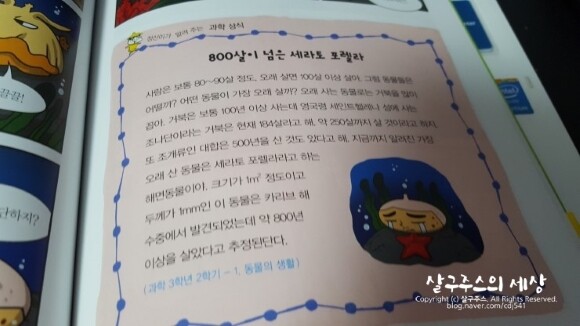 알려 주는 과학 상식
800살이 넘은 세라토 포렐라
사람은 보통 80~90살 정도, 오래 살면 100살 이상 살아. 그럼 동물들은
어떨까? 어떤 동물이 가장 오래 살까? 오래 사는 동물로는 거북을 많이
꼽아. 거북은 보통 100년 이상 사는데 영국령 세인트헬레나 섬에 사는
조나단이라는 거북은 현재 184살라고 해. 약 250살까지 살 것이라고 하지.
또 조개류인 대합은 500년을 산 것도 있다고 해. 지금까지 알려진 가장
오래 산 동물은 세라토 포렐라라고 하는
해면동물이야. 크기가 1m² 정도이고
두께가 1mm인 이 동물은 카리브 해
수중에서 발견되었는데 약 800년
이상을 살았다고 추정된단다.
(과학 3학년 2학기 - 1. 동물의 생활)
단하지?
살구주스의 세상
Copyright (c) 살구주스. All Rights Reserved.
blog.naver.com/cdj541